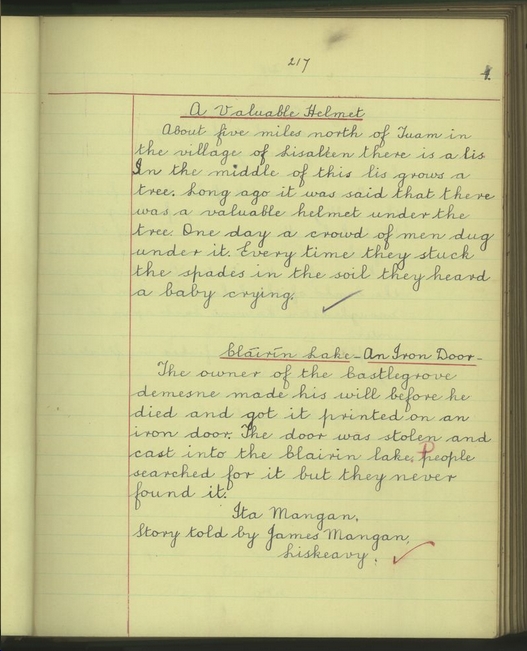 217
1.
A Valuable Helmet
About five miles north of Tuam in
the village of Lisalien there is a lis
In the middle of this lis grows a
tree. Long ago it was said that there
was a valuable helmet under the
tree. One day a crowd of men dug
under it. Every time they stuck
the spades in the soil they heard
a baby crying.
Cláirín Lake - An Iron Door -
The owner of the Castlegrove
demesne made his will before he
died and got it printed on an
iron door. The door was stolen and
cast into the Clairin lake. People
searched for it but they never
found it.
Ita Mangan,
Story told by James Mangan,
Liskeavy.